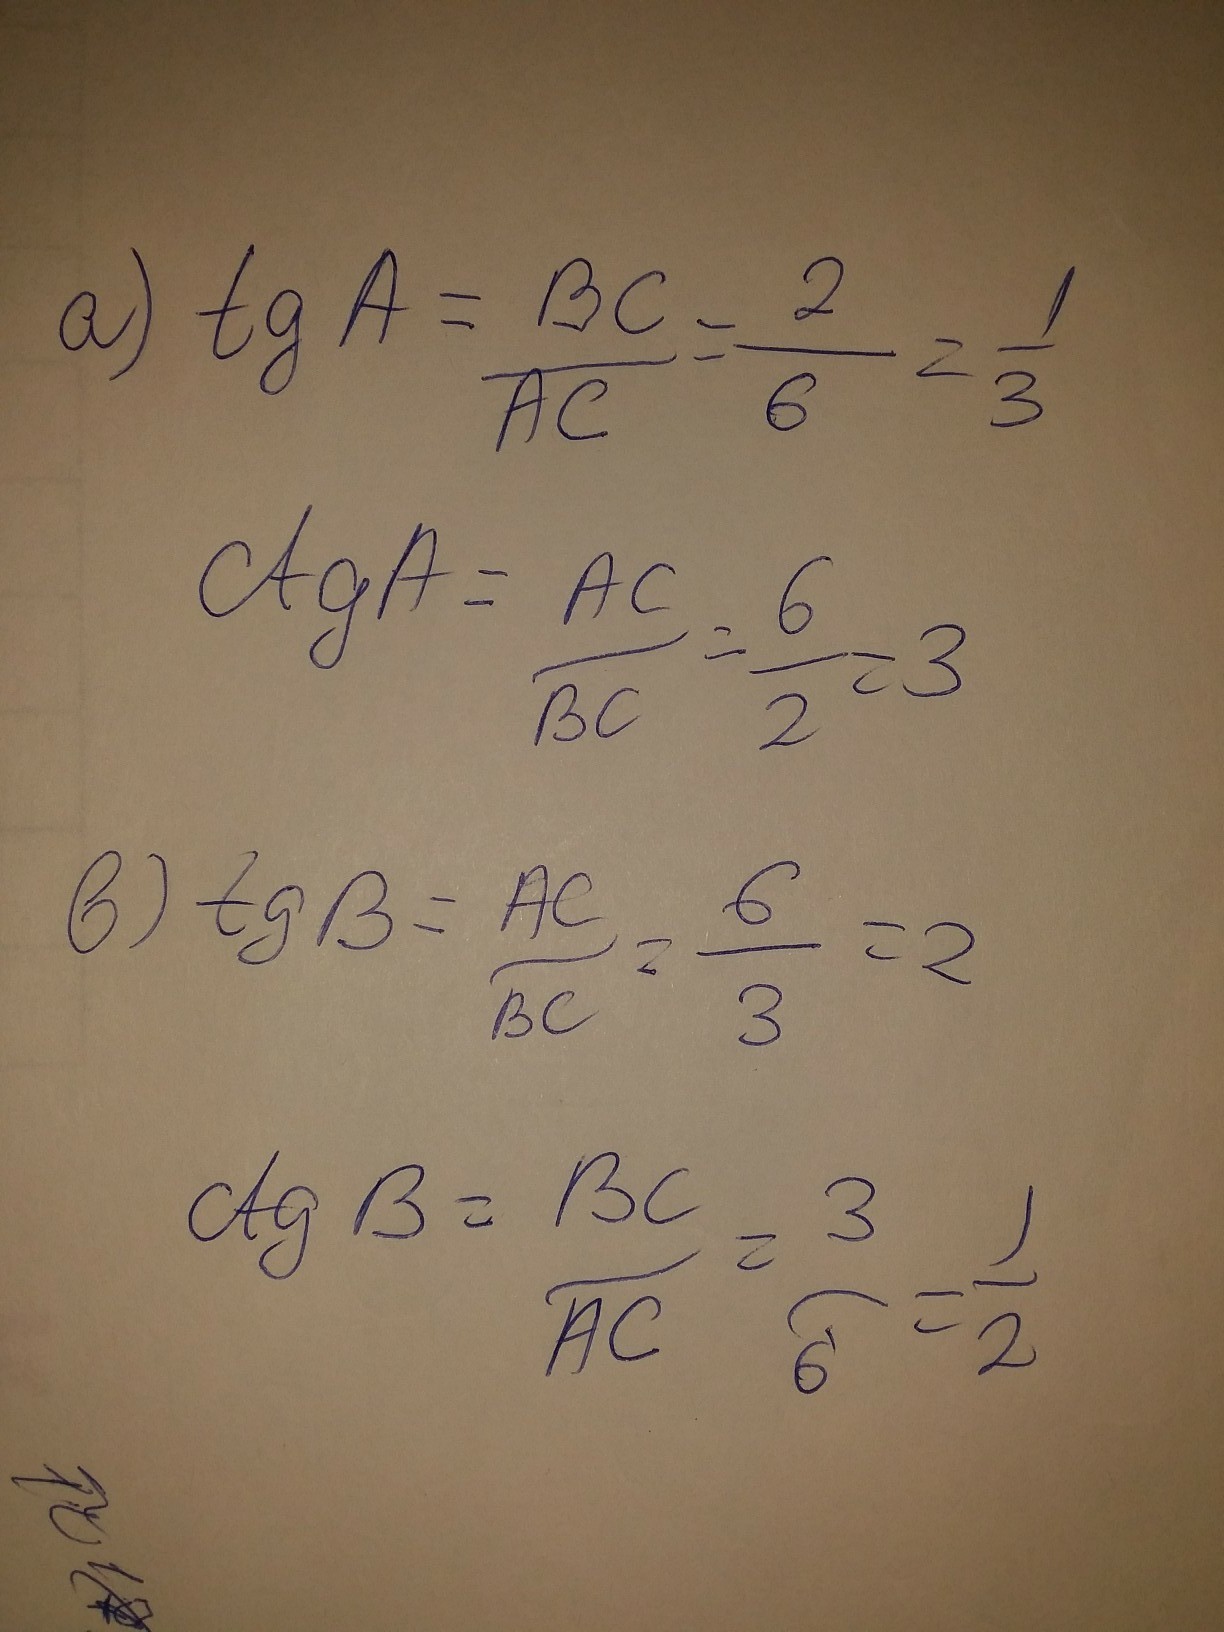 a) tg A = BC/AC = 2/6 = 1/3
ctg A = AC/BC = 6/2 = 3
b) tg B = AC/BC = 6/3 = 2
ctg B = BC/AC = 3/6 = 1/2